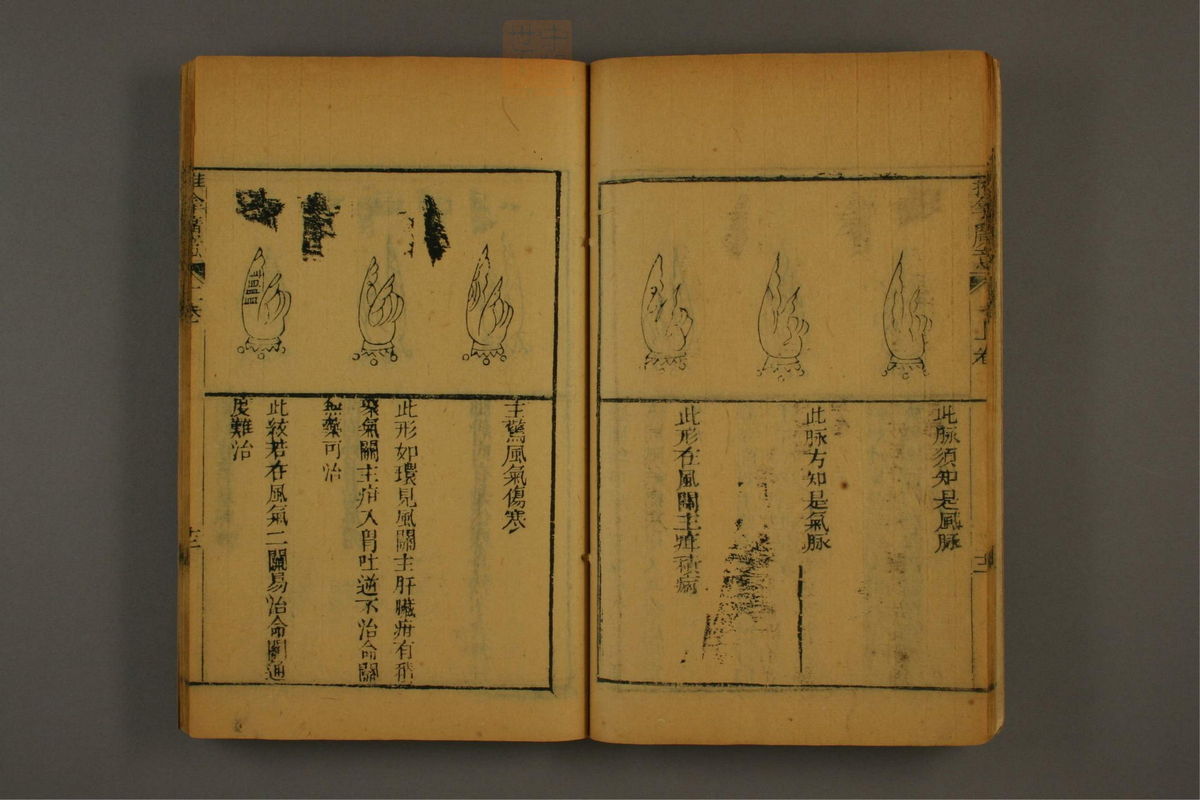 此脉須知是風脉
此脉方知是氣脉
此形在風關主疳積病
主驚風氣傷寒
此形如環見風關主肝臟疳有積
聚氣關主疳入胃吐逆不治命關
無藥可治
此紋若在風氣二關易治命關通
度難治
十二